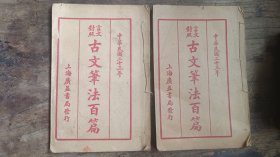 中華民國二十三年
言文對照
古文筆法百篇
上海廣益書局發行
中華民國二十三年
言文對照
古文筆法百篇
上海廣益書局發行